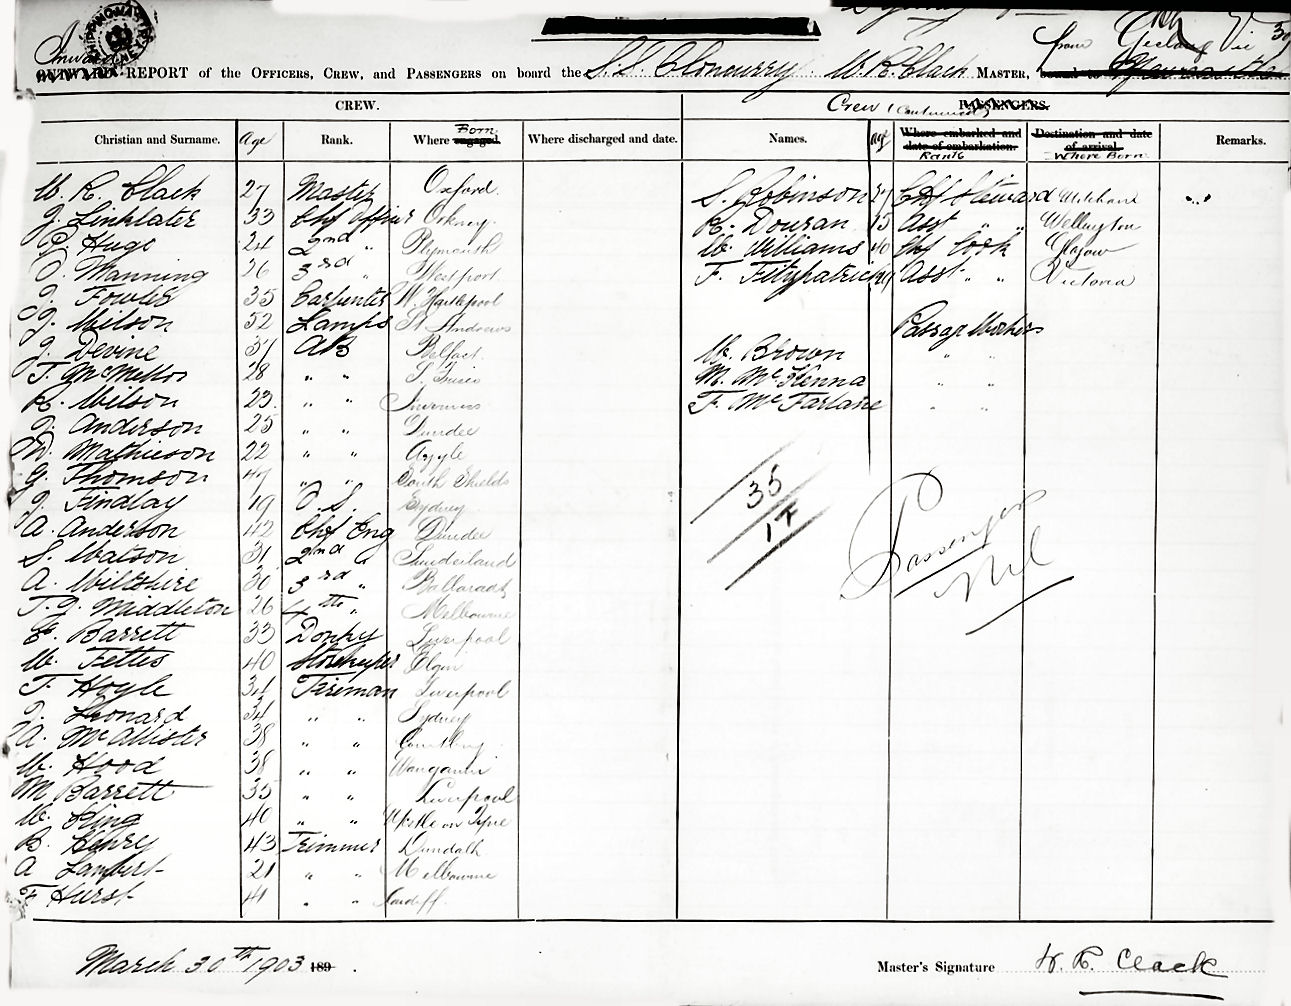 Inward
OUTWARD REPORT of the OFFICERS, CREW, and PASSENGERS on board the S.S. Cloncurry W. R. Clack MASTER, from Geelong Vic
CREW. Crew (Continued) PASSENGERS.
Christian and Surname. Age Rank. Where Born engaged. Where discharged and date. Names. age Where embarked and date of embarkation. Rank Destination and date of arrival. Where Born Remarks.
W. R. Clack 27 Master Oxford. S. Robinson Chf Steward
J. Linklater 33 Chf Officer Orkney. R. Douran 15 Asst " " Wellington
P. Hugo 24 2nd " Plymouth W. Williams 40 Chf Cook Glasgow
D. Manning 26 3rd " Westport F. Fitzpatrick Asst " " Victoria
J. Fowler 35 Carpenter W. Hartlepool
J. Wilson 52 Lamps St Andrews Passage Workers
J. Devine 37 AB Belfast. W. Brown " "
T. 28 " " M. McKenna " "
R. Wilson 23. " " Inverness F. McFarlane " "
J. Anderson 25 " " Dundee
D. Mathieson 22 " " Argyle
G. Thomson 47 " " South Shields
J. Findlay 19 O. S. Sydney
A. Anderson 42 Chf Eng Dundee
S. Watson 31 2nd " Sunderland
A. Wiltshire 30 3rd " Ballaradt
T. J. Middleton 26 4th " Melbourne
E. Barrett 33 Donkey Liverpool
W. Fettes 40 Storekeeper Elgin
T. Hoyle 34 Fireman Liverpool
J. Leonard 34 " " Sydney
A. McAllister 38 " "
W. Hood 38 " " Wanganui
M Barrett 35 " " Liverpool
W. King 40 " " N'castle on Tyne
B. Henry 43 Trimmer Dundalk
A Lambert 21 " " Melbourne
F Hurst 41 " " Cardiff.
35
17
Passengers
Nil
March 30th 1903 189 .
Master's Signature W. R. Clack